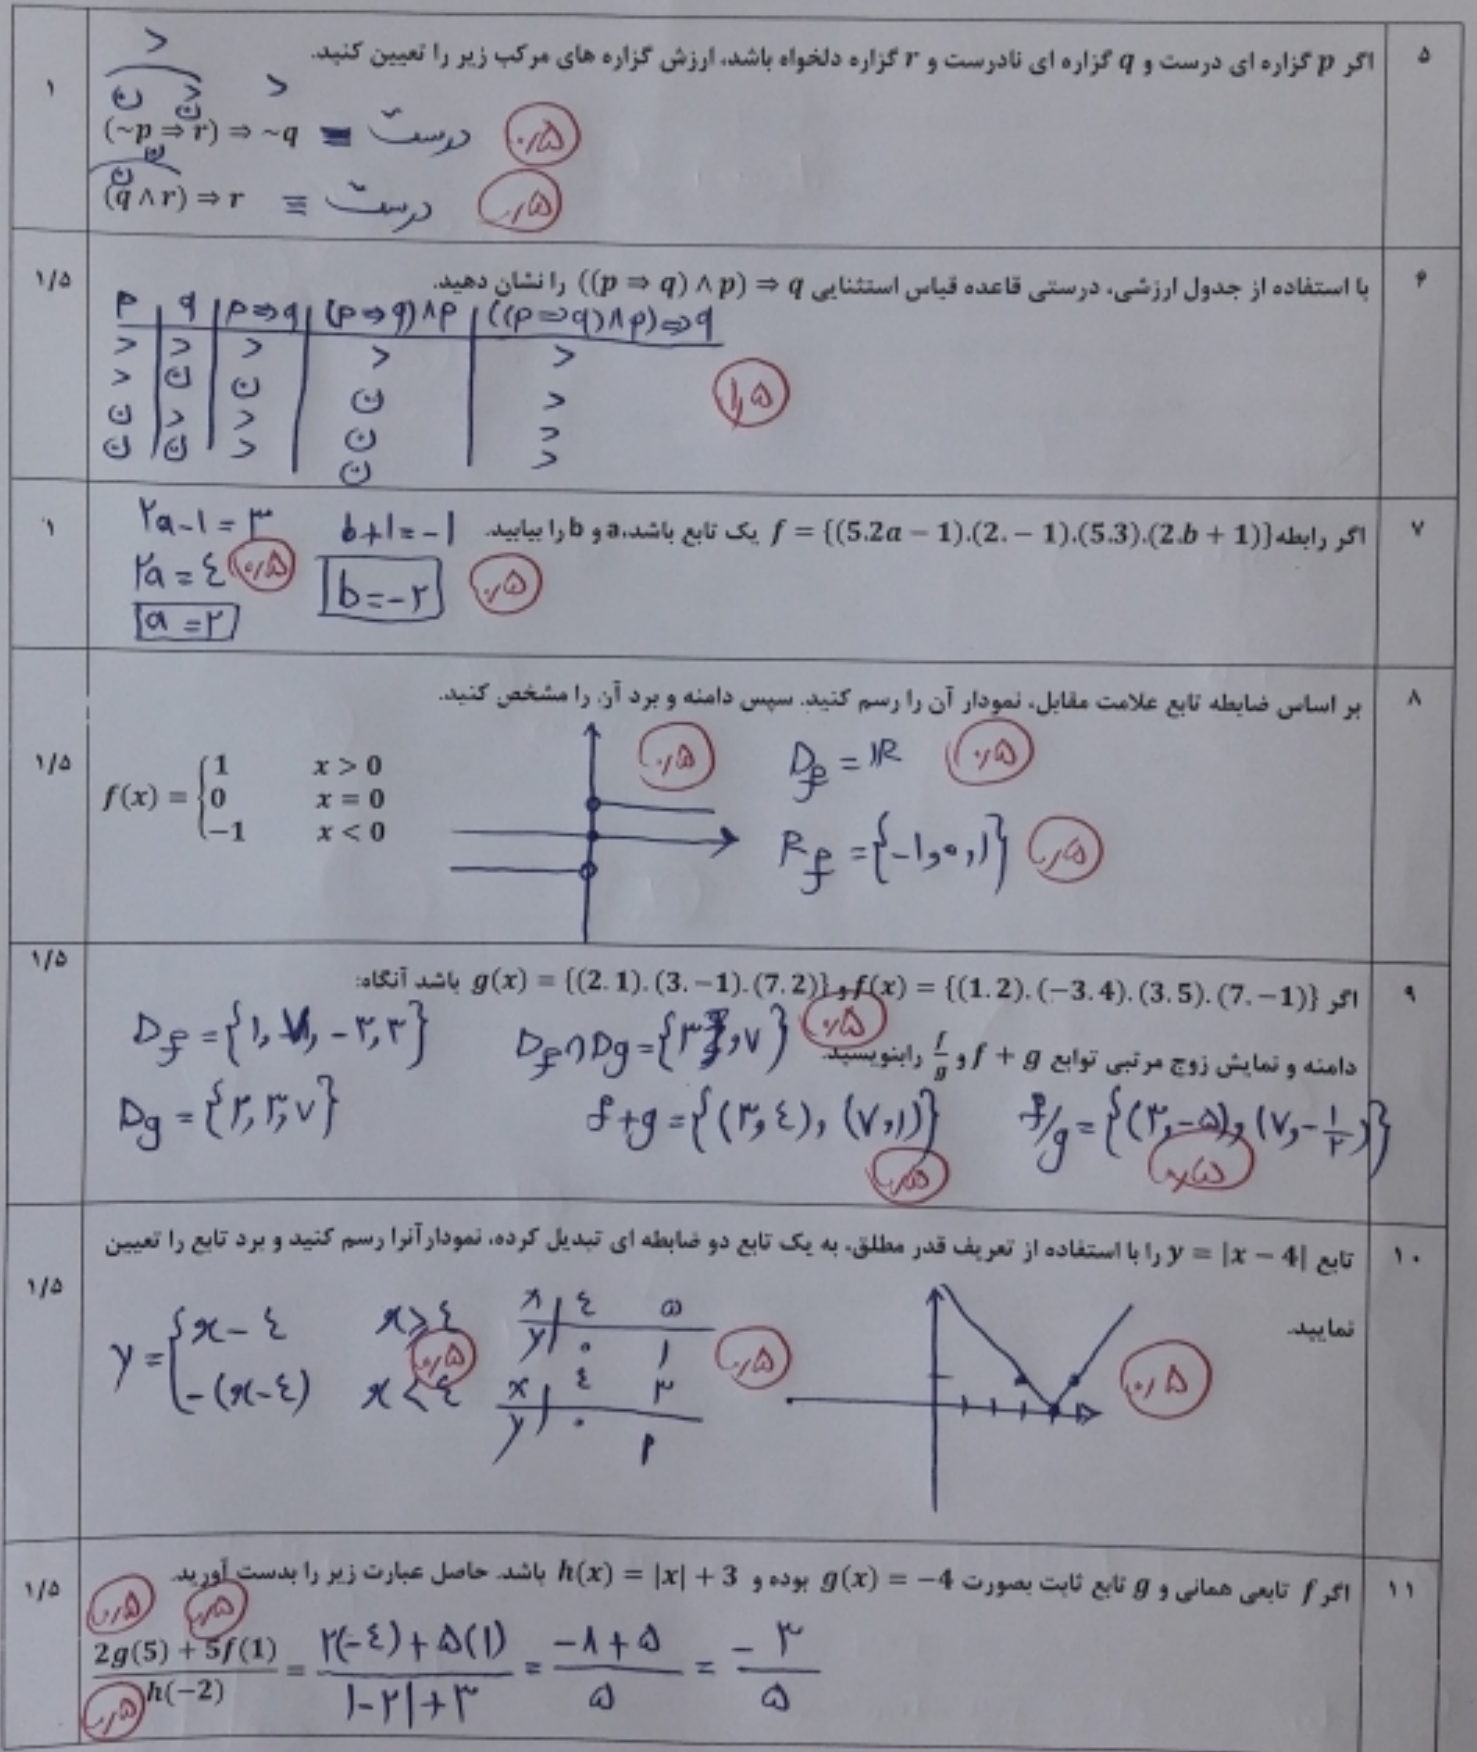 ۵
اگر p گزاره ای درست و q گزاره ای نادرست و r گزاره دلخواه باشد، ارزش گزاره های مرکب زیر را تعیین کنید.
۱
د
ن د د
ن
(~p ⇒ r) ⇒ ~q ≡ درست ۰/۵
ن
ن
(q ∧ r) ⇒ r ≡ درست ۰/۵
۶
با استفاده از جدول ارزشی، درستی قاعده قیاس استثنایی ((p ⇒ q) ∧ p) ⇒ q را نشان دهید.
۱/۵
p | q | p⇒q | (p⇒q)∧p | ((p⇒q)∧p)⇒q
د | د | د | د | د
د | ن | ن | ن | د
ن | د | د | ن | د
ن | ن | د | ن | د
۱,۵
۷
اگر رابطه f = {(5.2a − 1).(2. − 1).(5.3).(2.b + 1)} یک تابع باشد،a و b را بیابید.
۱
۲a-۱=۳ b+۱=-۱
۲a=٤ ۰/۵ b=-۲ ۰/۵
a=۲
۸
بر اساس ضابطه تابع علامت مقابل، نمودار آن را رسم کنید. سپس دامنه و برد آن را مشخص کنید.
۱/۵
f(x) = {1 x > 0
0 x = 0
−1 x < 0
۰/۵
D_f = IR ۰/۵
R_f = {-۱,۰,۱} ۰/۵
۹
اگر f(x) = {(1.2). (−3.4). (3.5). (7. −1)} و g(x) = {(2.1). (3. −1). (7.2)} باشد آنگاه:
۱/۵
دامنه و نمایش زوج مرتبی توابع f + g و f/g رابنویسید.
D_f = {۱, ۷, -۳,۳} D_f∩D_g={۳,۷} ۰/۵
D_g = {۲,۳,۷} f+g={(۳,٤), (۷,۱)} f/g={(۳,-۵), (۷,-۱/۲)}
۰/۵ ۰/۵
۱۰
تابع y = |x − 4| را با استفاده از تعریف قدر مطلق، به یک تابع دو ضابطه ای تبدیل کرده، نمودارآنرا رسم کنید و برد تابع را تعیین
نمایید.
۱/۵
y = {x-٤ x≥٤
-(x-٤) x<٤ ۰/۵
x | ٤ ۵
y | ۰ ۱
x | ٤ ۳
y | ۰ ۱
۰/۵
۰/۵
۱۱
اگر f تابعی همانی و g تابع ثابت بصورت g(x) = −4 بوده و h(x) = |x| + 3 باشد. حاصل عبارت زیر را بدست آورید.
۱/۵
۰/۵ ۰/۵
2g(5) + 5f(1) / h(−2) = ۲(-٤)+۵(۱) / |-۲|+۳ = -۸+۵ / ۵ = -۳ / ۵
۰/۵